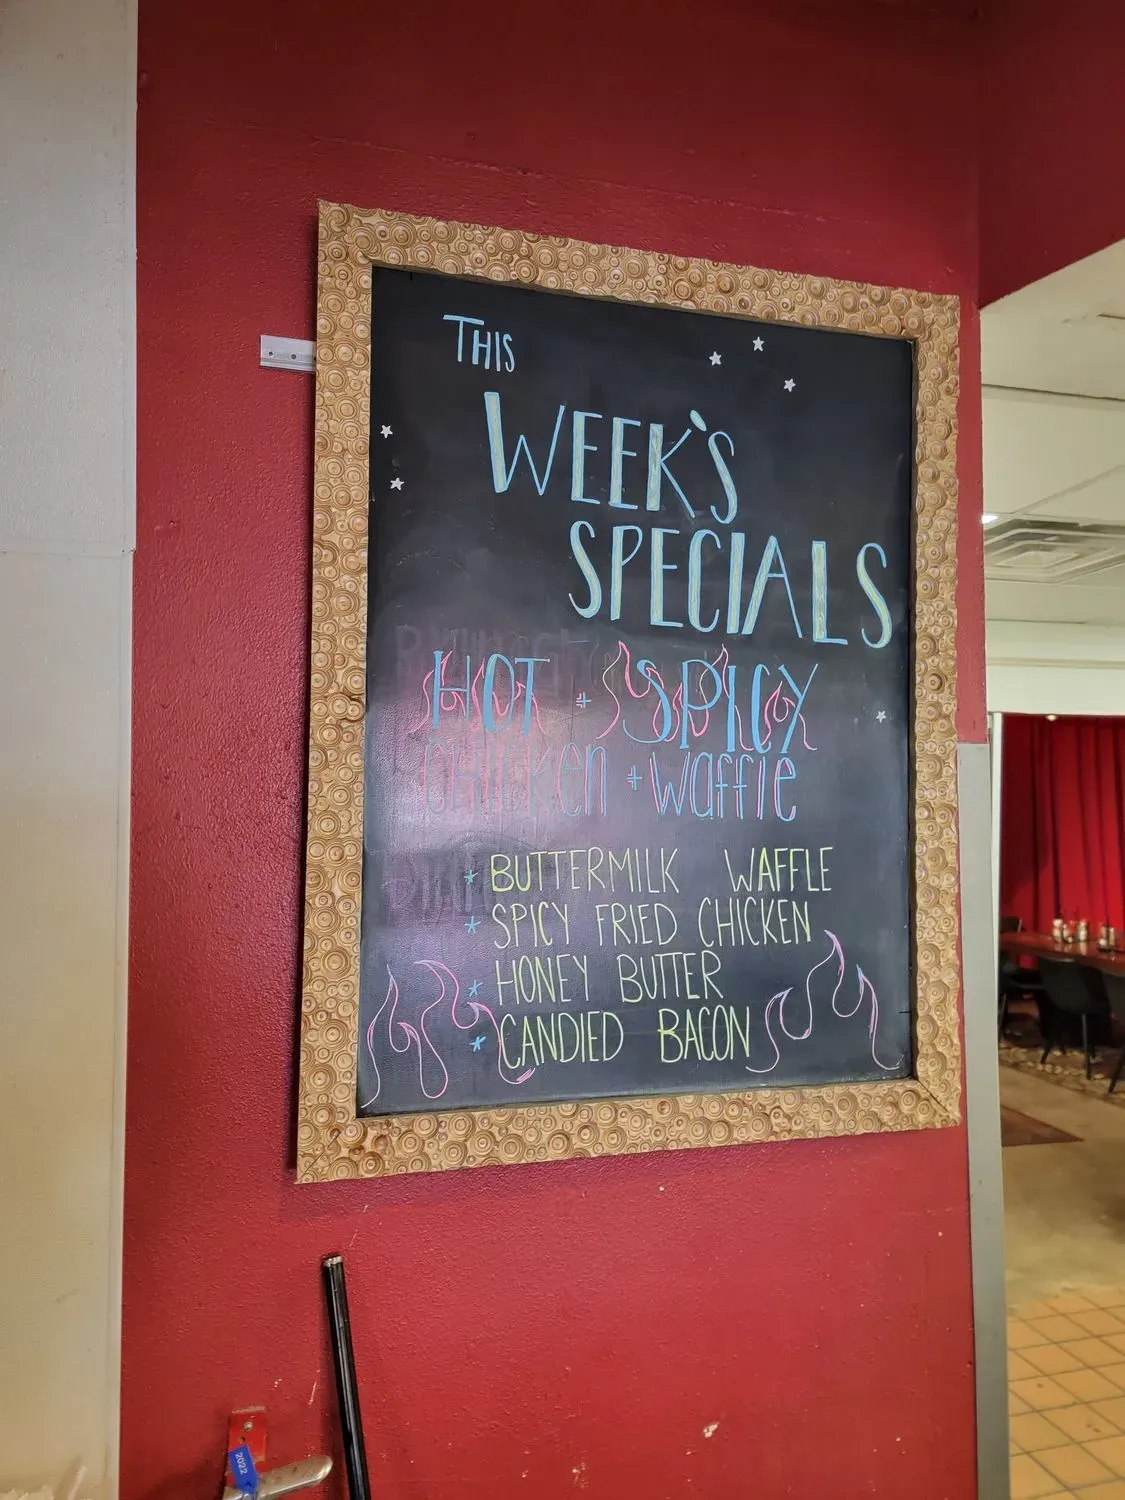 THIS
WEEK'S
SPECIALS
HOT + SPICY
CHICKEN + Waffle
* BUTTERMILK WAFFLE
* SPICY FRIED CHICKEN
* HONEY BUTTER
* CANDIED BACON
2022